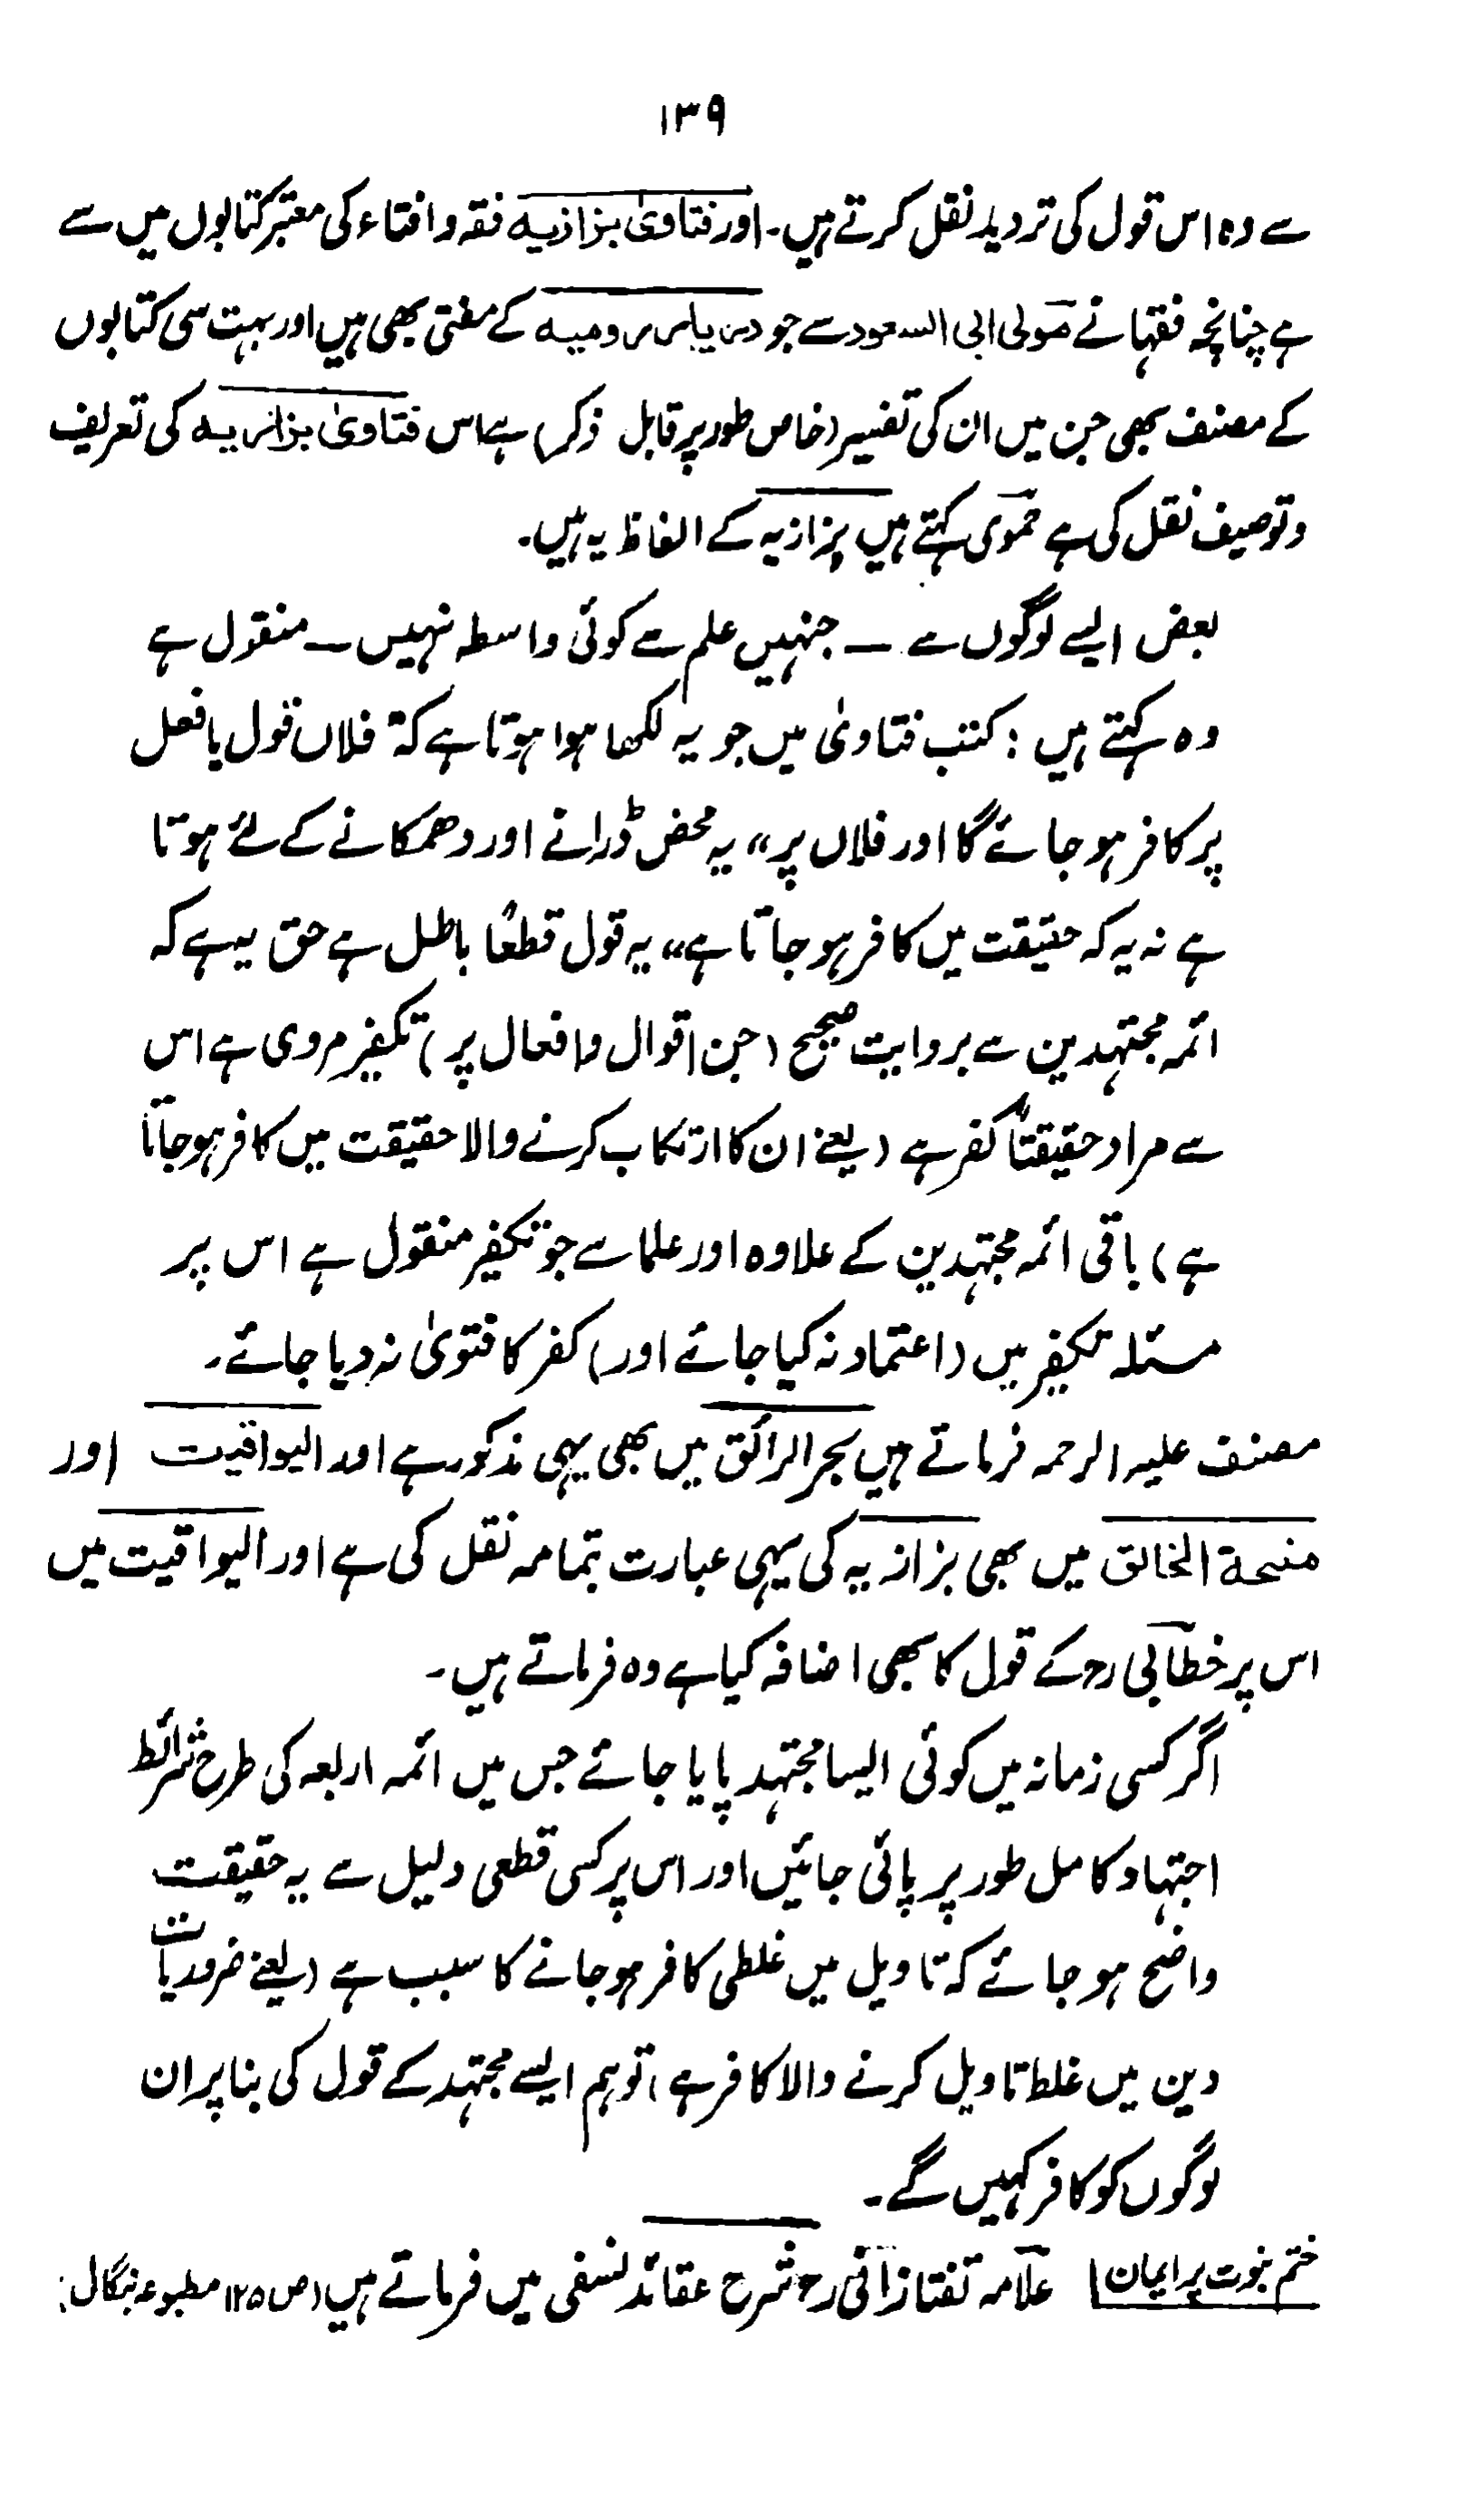 ۱۳۹
سے وہ اس قول کی تردید نقل کرتے ہیں۔ اور فتاویٰ بزازیہ فقہ و افتاء کی معتبر کتابوں میں سے
ہے چنانچہ فقہا نے مولی ابی السعود سے جو دیار رومیہ کے مفتی بھی ہیں اور بہت سی کتابوں
کے مصنف بھی جن میں ان کی تفسیر (خاص طور پر قابل ذکر) ہے اس فتاویٰ بزازیہ کی تعریف
و توصیف نقل کی ہے حموی کہتے ہیں بزازیہ کے الفاظ یہ ہیں۔
بعض ایسے لوگوں سے ــ جنہیں علم سے کوئی واسطہ نہیں ــ منقول ہے
وہ کہتے ہیں : کتب فتاویٰ میں جو یہ لکھا ہوا ہوتا ہے کہ "فلاں قول یا فعل
پر کافر ہو جائے گا اور فلاں پر" یہ محض ڈرانے اور دھمکانے کے لئے ہوتا
ہے نہ یہ کہ حقیقت میں کافر ہو جاتا ہے" یہ قول قطعاً باطل ہے حق یہ ہے کہ
ائمہ مجتہدین سے بروایت صحیح (جن اقوال و افعال پر) تکفیر مروی ہے اس
سے مراد حقیقتاً کفر ہے (یعنے ان کا ارتکاب کرنے والا حقیقت میں کافر ہو جاتا
ہے) باقی ائمہ مجتہدین کے علاوہ اور علما سے جو تکفیر منقول ہے اس پر
مسئلہ تکفیر میں (اعتماد نہ کیا جائے اور) کفر کا فتویٰ نہ دیا جائے۔
مصنف علیہ الرحمہ فرماتے ہیں بحر الرائق میں بھی یہی مذکور ہے اور الیواقیت اور
منحة الخالق میں بھی بزازیہ کی یہی عبارت بتمامہ نقل کی ہے اور الیواقیت میں
اس پر خطابی رح کے قول کا بھی اضافہ کیا ہے وہ فرماتے ہیں۔
اگر کسی زمانہ میں کوئی ایسا مجتہد پایا جائے جس میں ائمہ اربعہ کی طرح شرائط
اجتہاد کامل طور پر پائی جائیں اور اس پر کسی قطعی دلیل سے یہ حقیقت
واضح ہو جائے کہ تاویل میں غلطی کافر ہو جانے کا سبب ہے (یعنے ضروریات
دین میں غلط تاویل کرنے والا کافر ہے) تو ہم ایسے مجتہد کے قول کی بنا پر ان
لوگوں کو کافر کہیں گے۔
ختم نبوت پر ایمان علامہ تفتازانی رح شرح عقائد نسفی میں فرماتے ہیں (ص ۱۲۵ مطبوعہ بنگال)